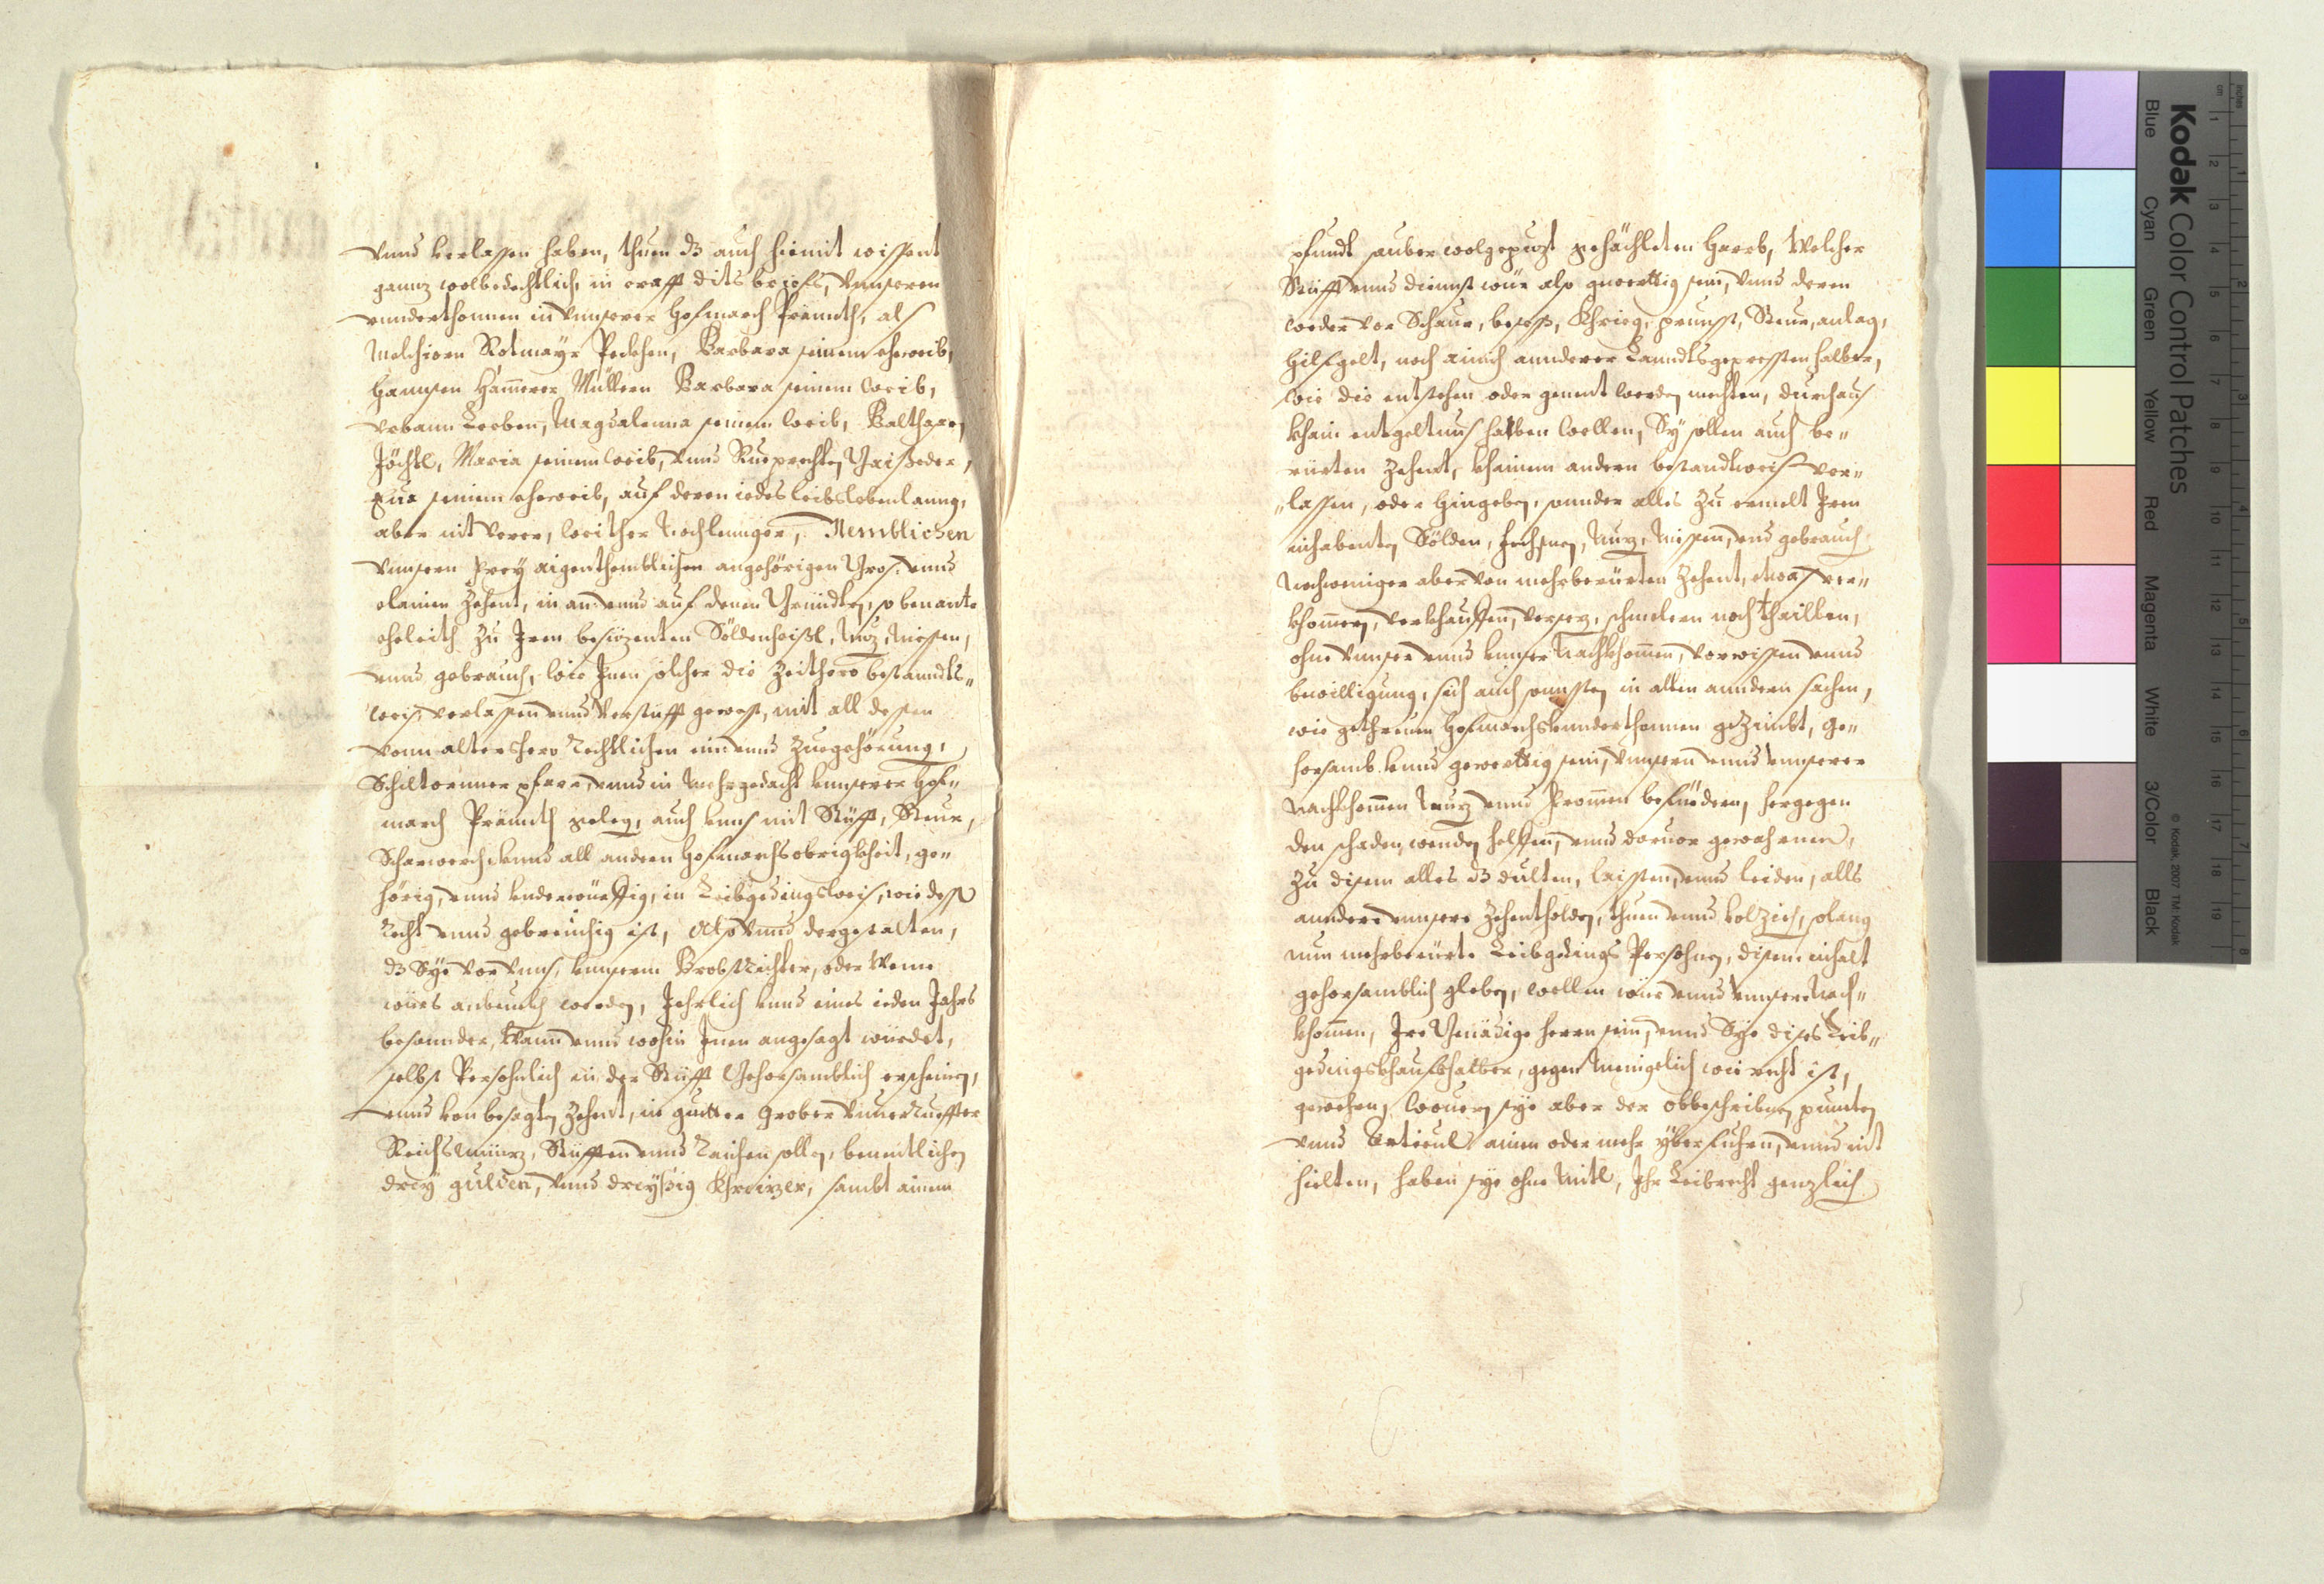 vnnd verlassen haben, thuen dz auch hiemit wissent
gannz wolbedechtlich, in crafft dits briefs, vnnseren
vnnderthonnen in vnnserer Hofmarch Prännth, als
Melchiorn Rotmayr Peckhen, Barbara seinem eheweib,
Hannsen Hämerer Müllern Barbara seinem weib,
Vrbann Lerben, Magdalenna seinem weib, Balthasar
Jöchtl, Maria seinem weib, vnnd Rueprechten
Eua seinem eheweib, auf deren iedes leibslebenlanng,
aber nit verer, weither noch lennger, Nemblichen
vnnsern frey aigenthomblichen angehörigen Gros: vnnd
clainen Zehent, in an: vnnd auf denen Gründten, so benante
eheleith zu Iren besizenten Söldenheißl, Nuz, Niessen,
vnnd gebrauch, wie Inen solcher die Zeithero bestanndts„
weis, verlassen vnnd verstüfft gewest, mit all dessen
vonn alters hero Rechtlichen ein: vnnd Zuegehörung,
Schiltorner pfarr, vnnd in Mehrgedacht vnnserer Hof„
march Prännth gelegen, auch vnns mit Stüfft, Steur,
Scharwerch vnnd all andern Hofmarchsobrigkheit, ge„
hörig, vnnd vnderwürffig, in Leibgedingsweis, wie dess
Recht vnnd gebreichig ist, Also vnnd dergestalten,
dz Sye vor vnns, vnnserm Brobstrichter, oder Weme
wirs anbeuelch werden, Jehrlich vnnd eines ieden Jahrs
besonnder, Wann vnnd wohin Inen angesagt würdet,
selbst Persohnlich in der Stüfft Gehorsamblich erscheinen,
vnnd von besagten Zehent, in guetter grober vnuerrueffter
Reichsmünz, Stüfften vnnd Raichen sollen, benentlichen
drey gulden, vnnd dreyssig Khreizer, sambt ainem
pfundt sauber wolgepuzt gehächleten Haarb, Welcher
Stüfft vnnd diennst wür also gewerttig sein, vnnd deren
weder vor Schaur, bisess, Khrieg, prunst, Steur, anlag,
Hilfgelt, noch ainich annderer Lanndtsgepressten halber,
wie die entstehen oder genent werden mechten, durchaus
khain entgeltnus haben wellen, Sy sollen auch be„
rürten Zehent, khainem andern bestandtweis ver„
„lassen, oder hingeben, sonnder alles zu ermelt Iren
inhabenten Sölden, fechsnen, Nuz, Niessen, vnd gebrauch,
Nochweniger aber von mehrberürten Zehent, etwas ver„
khomern, verkhauffen, versezen, schmelern noch thaillen,
ohne vnnser vnnd vnnser Nachkhomen, vorwissen vnnd
bewilligung, sich auch sonnsten in allen anndern sachen,
wie gethreuen Hofmarchsvnnderthonnen geZimbt, ge„
horsamb vnnd gewerttig sein, vnnsern vnnd vnnserer
Nachkhomen Nuz vnnd fromen befürdern, hergegen
den schaden wenden helffen, vnnd daruor gewahrnen,
Zu disem alles dz dulten, laissten, vnnd leiden, alls
anndere vnnsere Zehentholden, thuen vnnd volziech, solang
nun mehrberürte Leibgedings Persohnen, disem inhalt
gehorsamblich gleben, wellen wür vnnd vnnsere Nach„
khomen, Ire Genädige herrn sein, vnnd Sye dises Leib„
gedingskhaufshalber, gegen Menigelich wie recht ist,
gewehren, Wouern sye aber der obbeschribnen puncten
vnnd Articul ainen oder mehr yberfuehren, vnnd nit
hielten, haben sye ohne Mitl, Ihr Leibrecht genzlich
Kodak Color Control Patches
Blue Cyan Green Yellow Red Magenta White 3/Color Black
© Kodak, 2007 TM: Kodak
inches 1 2 3 4 5 6 7 8
cm 1 2 3 4 5 6 7 8 9 10 11 12 13 14 15 16 17 18 19